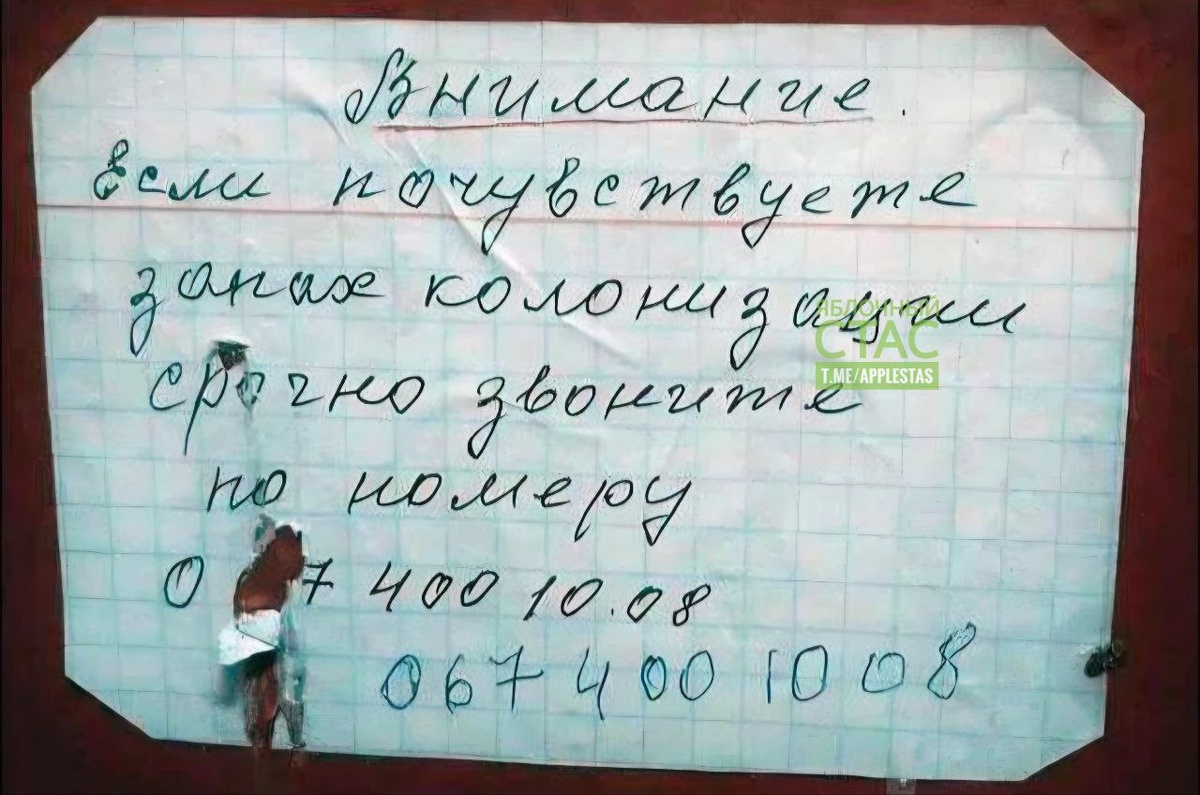 Внимание.
Если почувствуете
запах колонизации
срочно звоните
по номеру
0 7 400 10.08
067 400 10 08
ЯБЛОЧНЫЙ
СТАС
T.ME/APPLESTAS